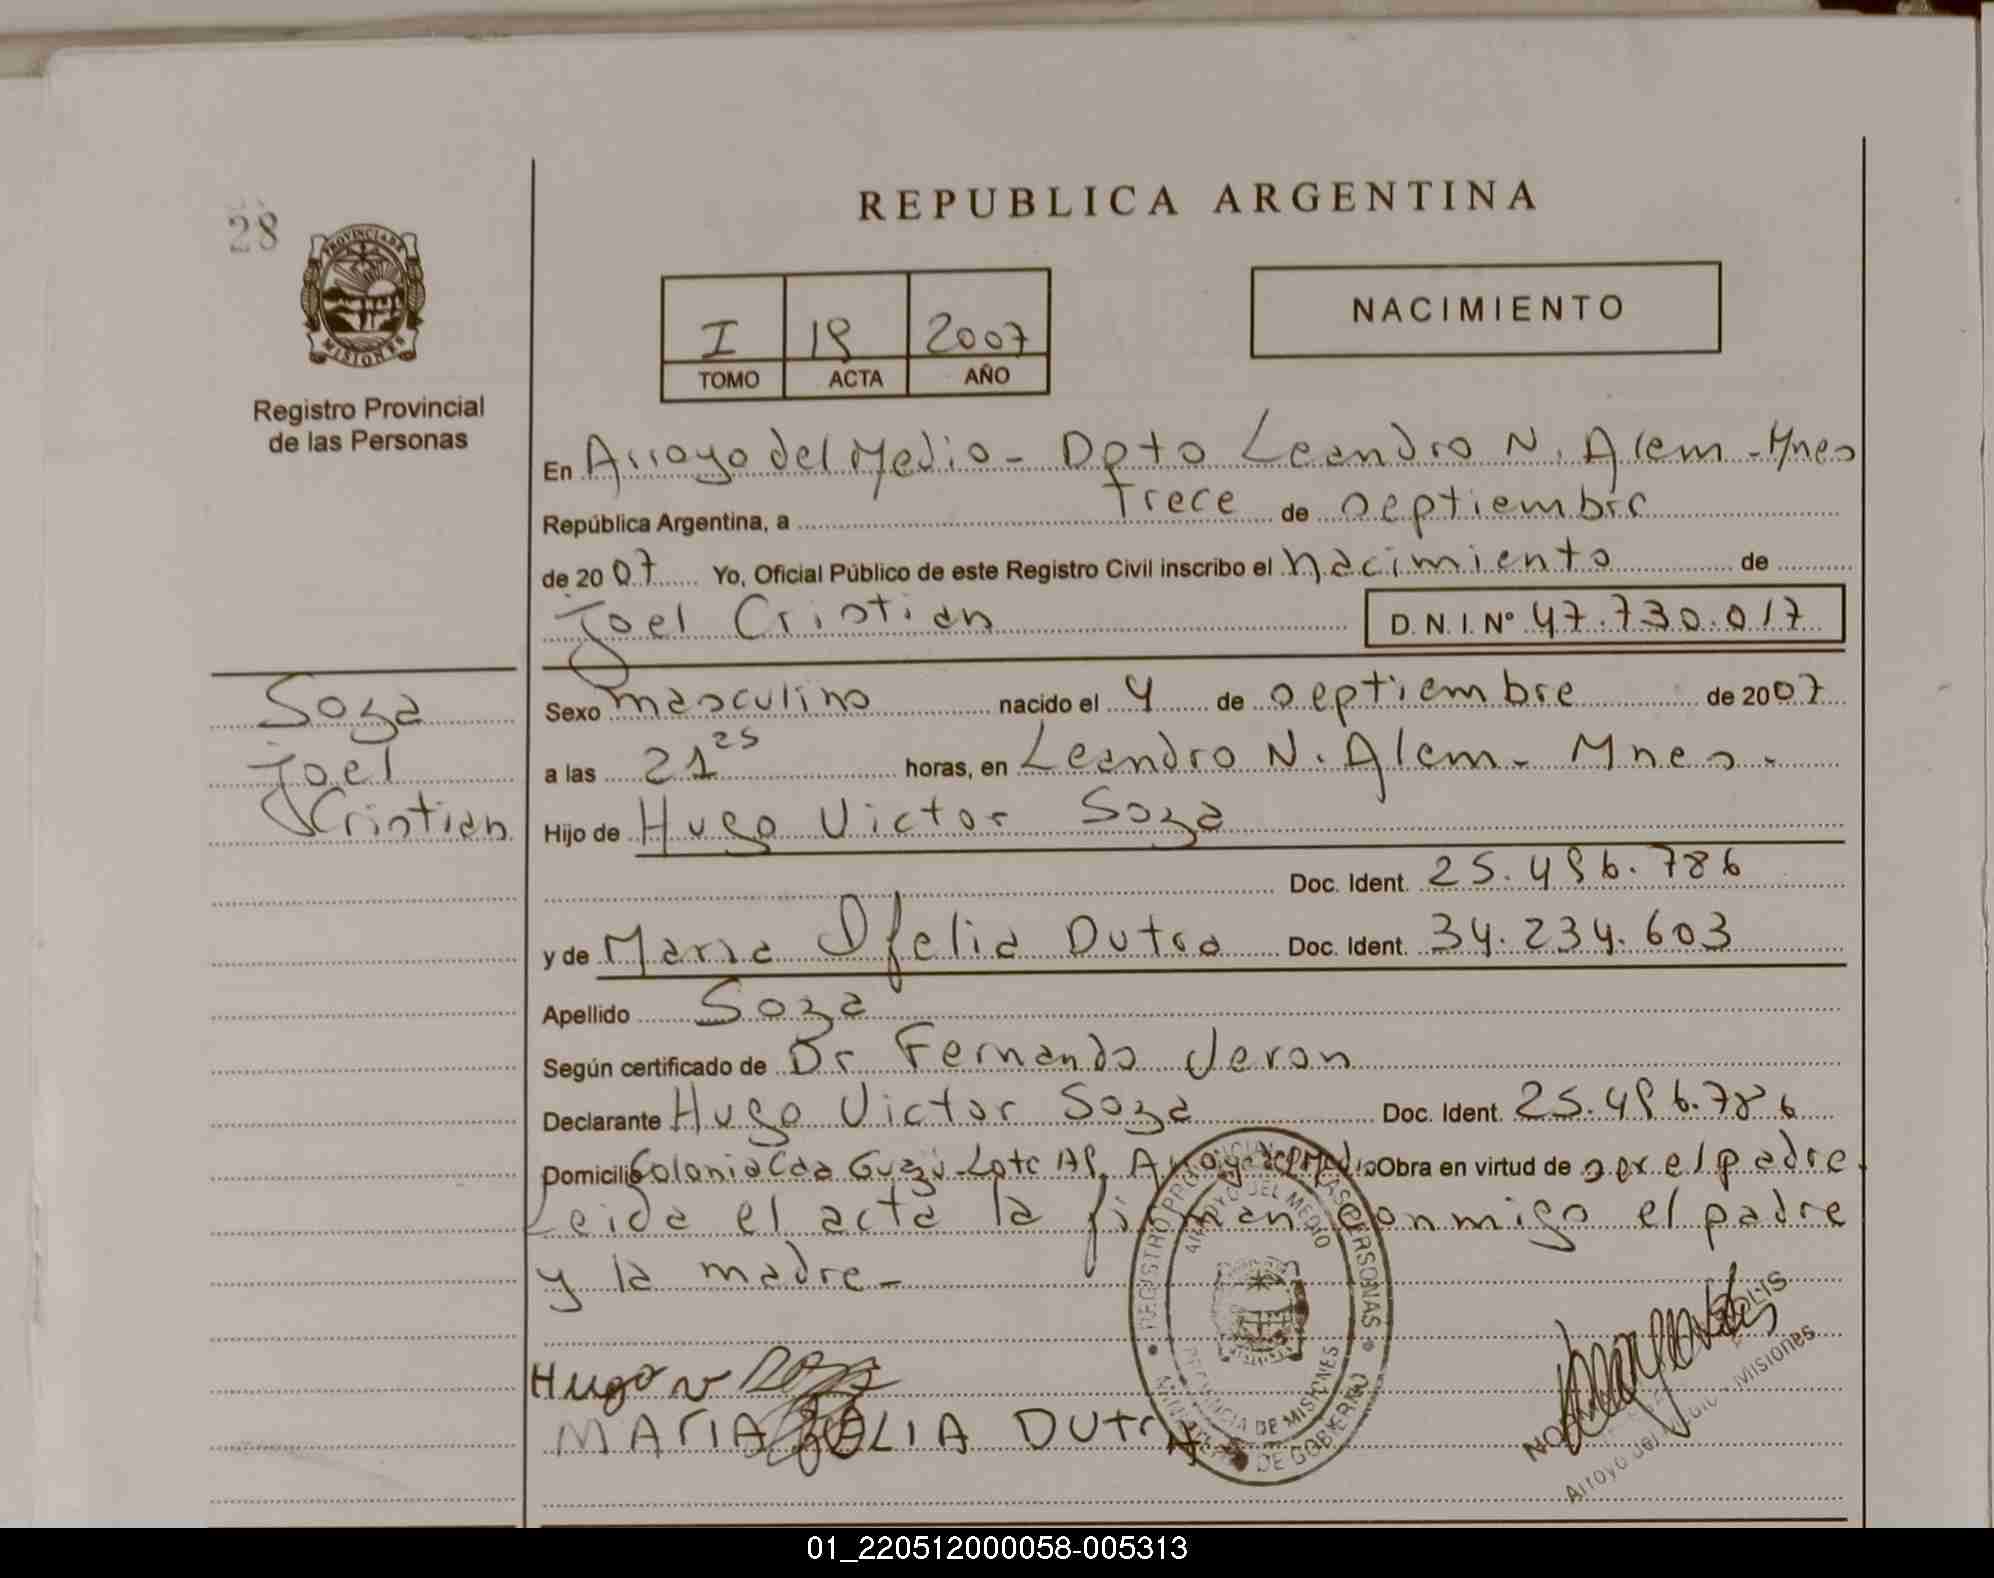 REPUBLICA ARGENTINA
28
PROVINCIA DE
MISIONES
Registro Provincial
de las Personas
NACIMIENTO
I 19 2007
TOMO ACTA AÑO
En Arroyo del Medio - Dpto Leandro N. Alem - Mnes
República Argentina, a trece de septiembre
de 2007 Yo, Oficial Público de este Registro Civil inscribo el nacimiento de
Joel Cristian D. N. I. Nº 47.730.017
Soza
Joel
Cristian
Sexo masculino nacido el 4 de septiembre de 2007
a las 21 25 horas, en Leandro N. Alem - Mnes.
Hijo de Hugo Victor Soza
Doc. Ident. 25.496.786
y de Maria Ofelia Dutra Doc. Ident. 34.234.603
Apellido Soza
Según certificado de Dr Fernando Veron
Declarante Hugo Victor Soza Doc. Ident. 25.496.786
Domicilio Colonia Cda Guzú Lote 19, Arroyo del Medio Obra en virtud de ser el padre.
Leida el acta la firman conmigo el padre
y la madre -
Hugo V Soza
MARIA OFELIA DUTRA
REGISTRO PROVINCIAL DE LAS PERSONAS
ARROYO DEL MEDIO
PROVINCIA DE MISIONES
MINISTERIO DE GOBIERNO
Arroyo del Medio - Misiones
01_220512000058-005313